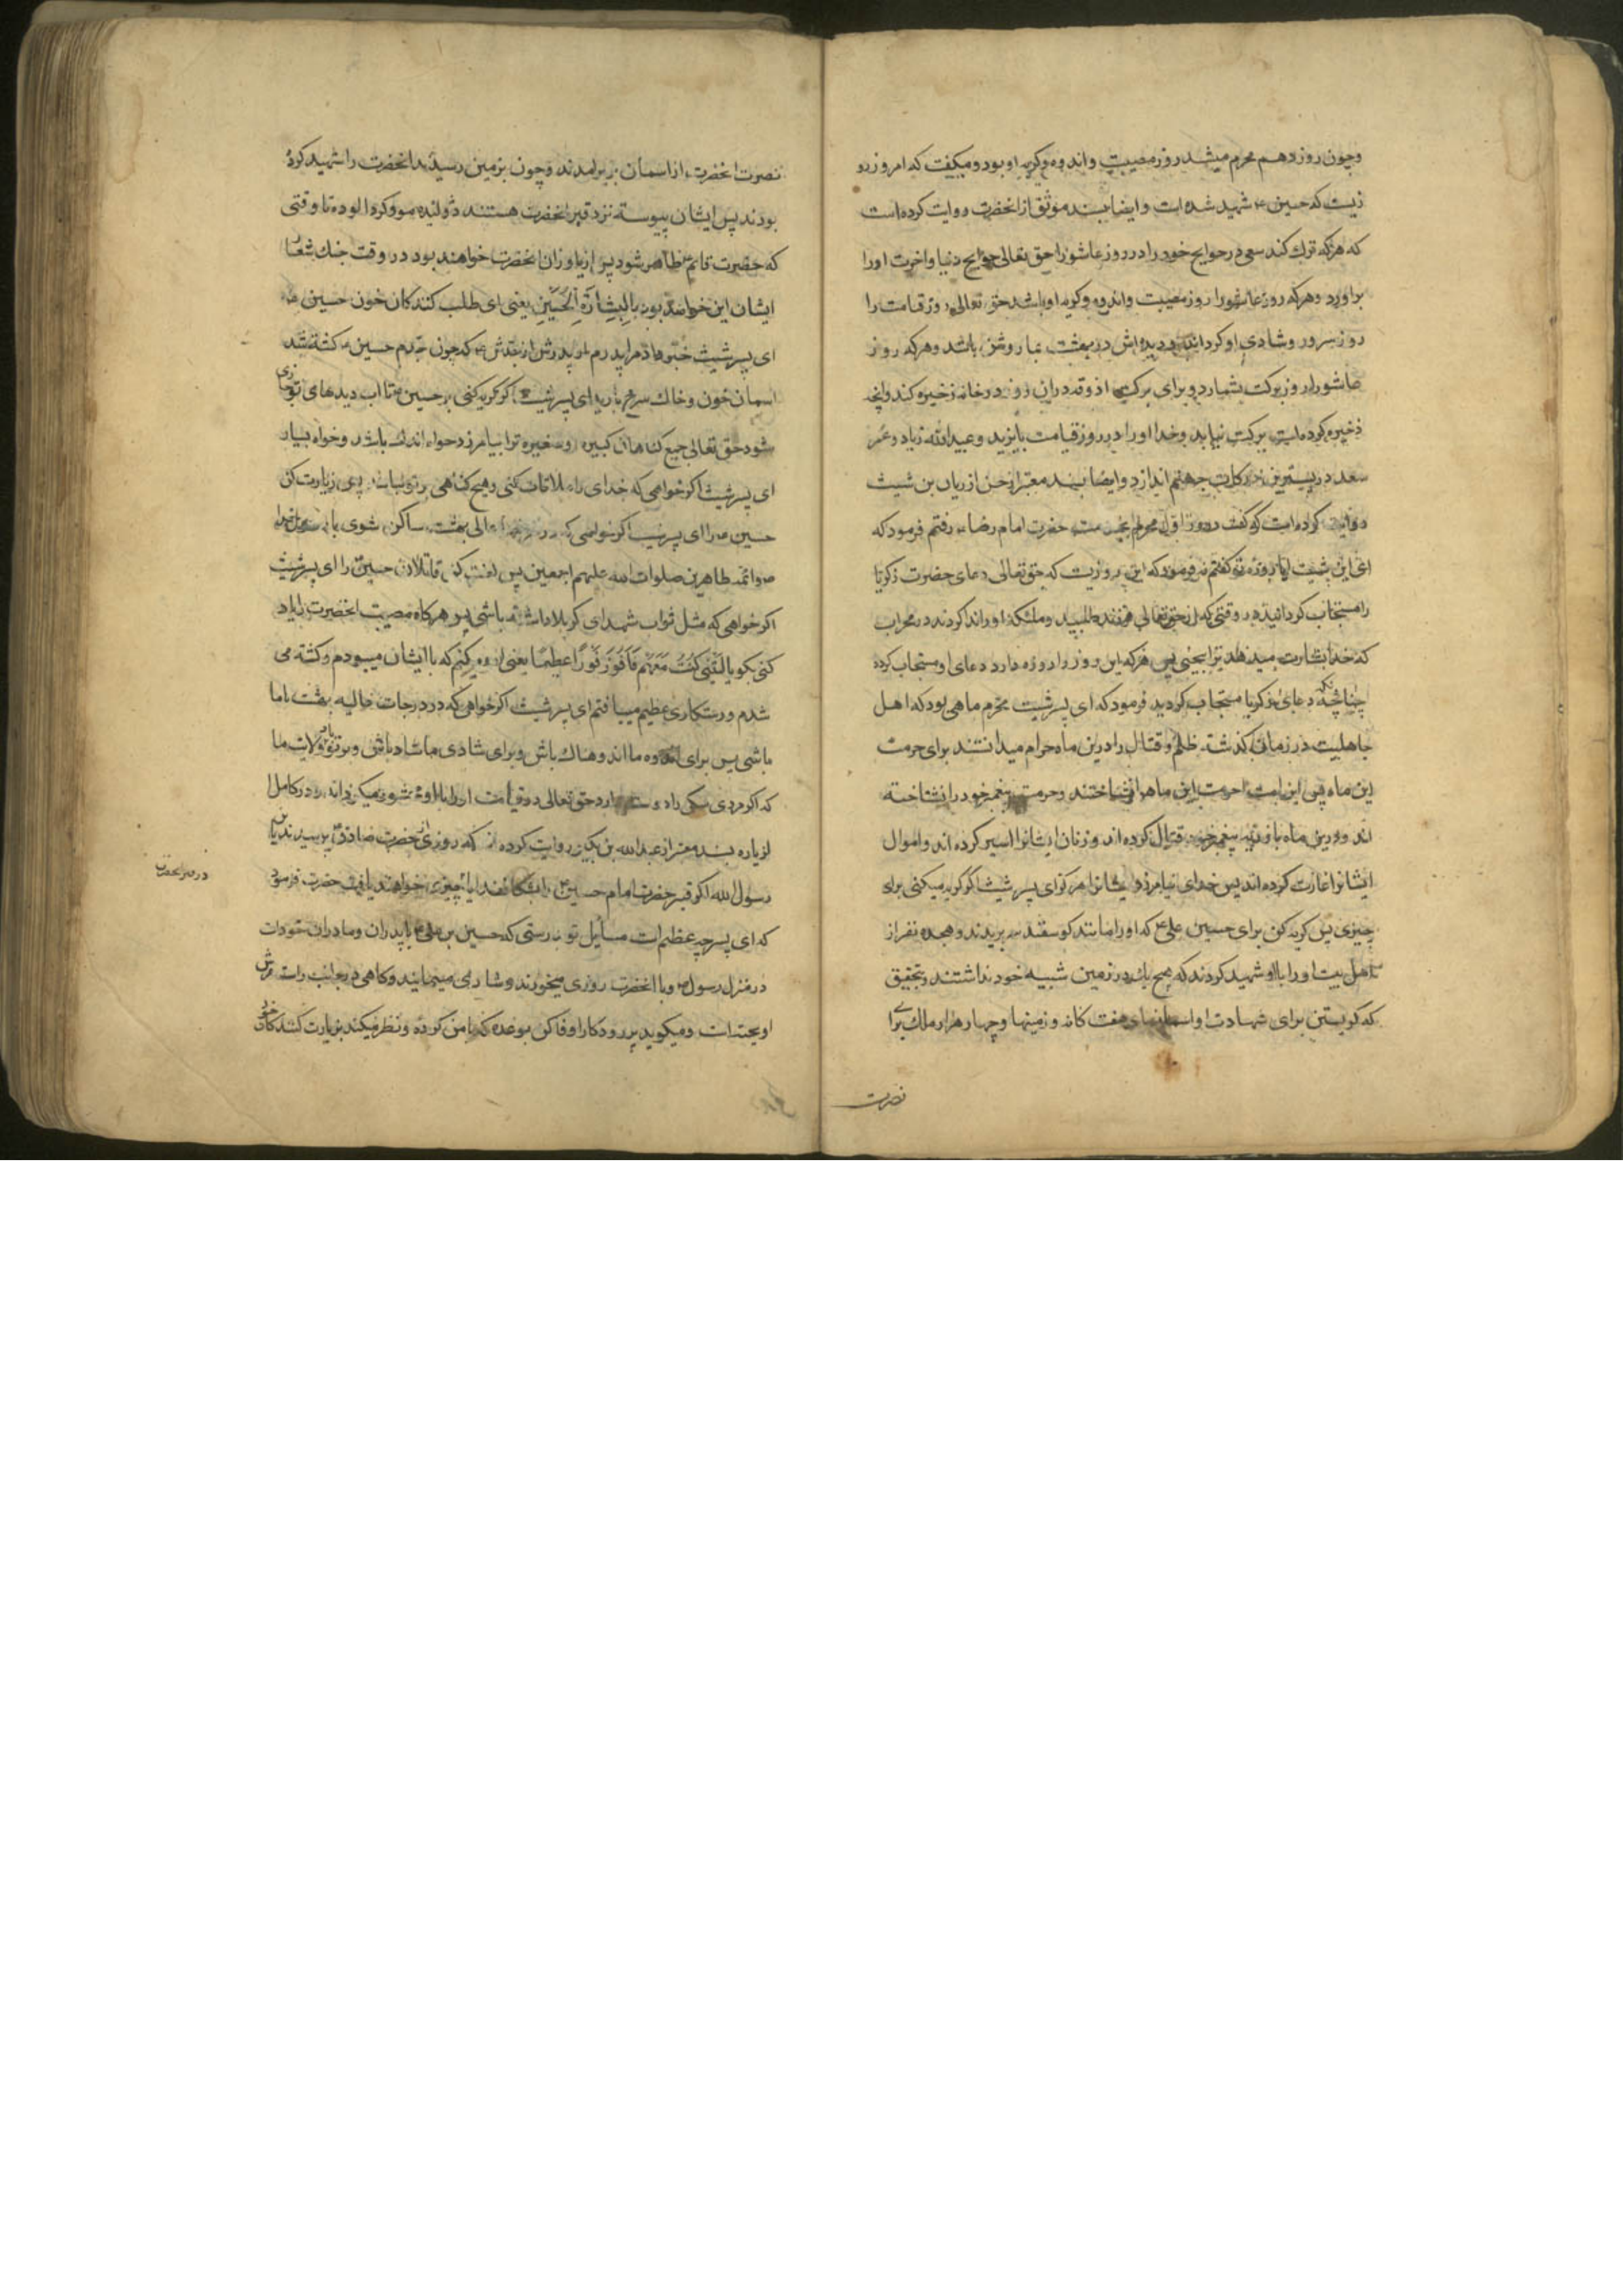 وچون روز دهم محرم میشد روز مصیبت و اندوه وکریه او بود و میکفت که امروز رو
زیست که حسین ع شهید شده است و ایضا بسند موثق از انحضرت روایت کرده است
که هرکه ترك کند سعی در حوایج خود را در روز عاشورا حق تعالی حوایج دنیا و اخرت اورا
براورد وهرکه روز عاشورا روز مصیبت واندوه وکریه او باشد حق تعالی روز قیامت را
روز سرور وشادی او کرداند و دیده اش در بهشت بما روشن باشد وهرکه روز
عاشورا روز برکت بشمارد و برای برکت اذوقه دران روز در خانه ذخیره کند وانچه
ذخیره کرده است برکت نیابد وخدا اورا در روز قیامت با یزید وعبیدالله زیاد وعمر
سعد در پستترین درکات جهنم اندازد وایضا بسند معتبر از حسن از ریان بن شبیث
روایت کرده است که کفت در روز اول محرم بخدمت حضرت امام رضاء رفتم فرمود که
ای ابن شبیث ایا روزه تو کفتم نه فرمود که این روزیست که حق تعالی دعای حضرت زکریا
را مستجاب کردانیده در وقتی که از حق تعالی فرزند طلبید وملئکه اورا ندا کردند در محراب
که خدا بشارت میدهد ترا بیحیی پس هرکه این روز را روزه دارد دعای او مستجاب کرده
چنانچه دعای زکریا مستجاب کردید فرمود که ای پسر شبیث محرم ماهی بود که اهل
جاهلیت در زمان کذشته ظلم وقتال را درین ماه حرام میدانستند برای حرمت
این ماه پس این امت حرمت این ماه را نشناختند وحرمت پیغمبر خود را نشناخته
اند ودرین ماه با ذریه پیغمبر خود قتال کرده اند وزنان ایشانرا اسیر کرده اند واموال
ایشانرا غارت کرده اند پس خدای نیامرزد ایشانرا هرکز ای پسر شبیث اکر کریه میکنی برای
چیزی پس کریه کن برای حسین علی ع که اورا مانند کوسفند سر بریدند وهجده نفر از
اهل بیت اورا با او شهید کردند که هیچ یك در زمین شبیه خود نداشتند وبتحقیق
که کریستن برای شهادت او اسمانهای هفت کانه وزمینها وچهار هزار ملك برای
نصرت
نصرت انحضرت از اسمان بزیر امدند وچون بزمین رسیدند انحضرت را شهید کرده
بودند پس ایشان پیوسته نزد قبر انحضرت هستند ژولیده مو وکرد الوده تا وقتی
که حضرت قایم ظاهر شود پس از یاوران انحضرت خواهند بود در وقت جنك شعار
ایشان این خواهد بود یالثارة الحسین یعنی ای طلب کنندکان خون حسین
ای پسر شبیث خبر داد مرا پدرم از پدرش از جدش ع که چون جدم حسین ع کشته شد
اسمان خون وخاك سرخ بارید ای پسر شبیث اکر کریه کنی بر حسین تا اب دیدهای تو جاری
شود حق تعالی جمیع کناهان کبیره وصغیره ترا بیامرزد خواه اندك باشد وخواه بسیار
ای پسر شبیث اکر خواهی که خدای را ملاقات کنی وهیچ کناهی بر تو نباشد پس زیارت کن
حسین را ای پسر شبیث اکر خواهی که در غرفهای عالی بهشت ساکن شوی با رسول خدا
وائمه طاهرین صلوات الله علیهم اجمعین پس لعنت کن قاتلان حسین را ای پسر شبیث
اکر خواهی که مثل ثواب شهدای کربلا داشته باشی پس هرکاه مصیبت انحضرت را یاد
کنی بکو یا لیتنی کنت معهم فافوز فوزا عظیما یعنی ارزو میکنم که با ایشان میبودم وکشته می
شدم ورستکاری عظیم مییافتم ای پسر شبیث اکر خواهی که در درجات عالیه بهشت باما
باشی پس برای اندوه ما اندوهناك باش وبرای شادی ما شاد باش وبر تو باد ولایت ما
که اکر مردی سنکی را دوست دارد حق تعالی در قیامت اورا با او محشور میکرداند ودر کامل ا
لزیاره بسند معتبر از عبدالله بن بکیر روایت کرده که روزی از حضرت صادق پرسیدند یا بن
رسول الله اکر قبر حضرت امام حسین را بشکافند ایا چیزی خواهند یافت حضرت فرمود
که ای پسر چه عظیم است مسایل تو بدرستی که حسین بن علی با پدران ومادران خودات
در منزل رسول وبا انحضرت روزی میخورند وشادی مینمایند وکاهی در جانب راست عرش
اویخته است ومیکوید پروردکارا وفا کن بوعده که با من کرده ونظر میکند بزیارت کنندکان خود